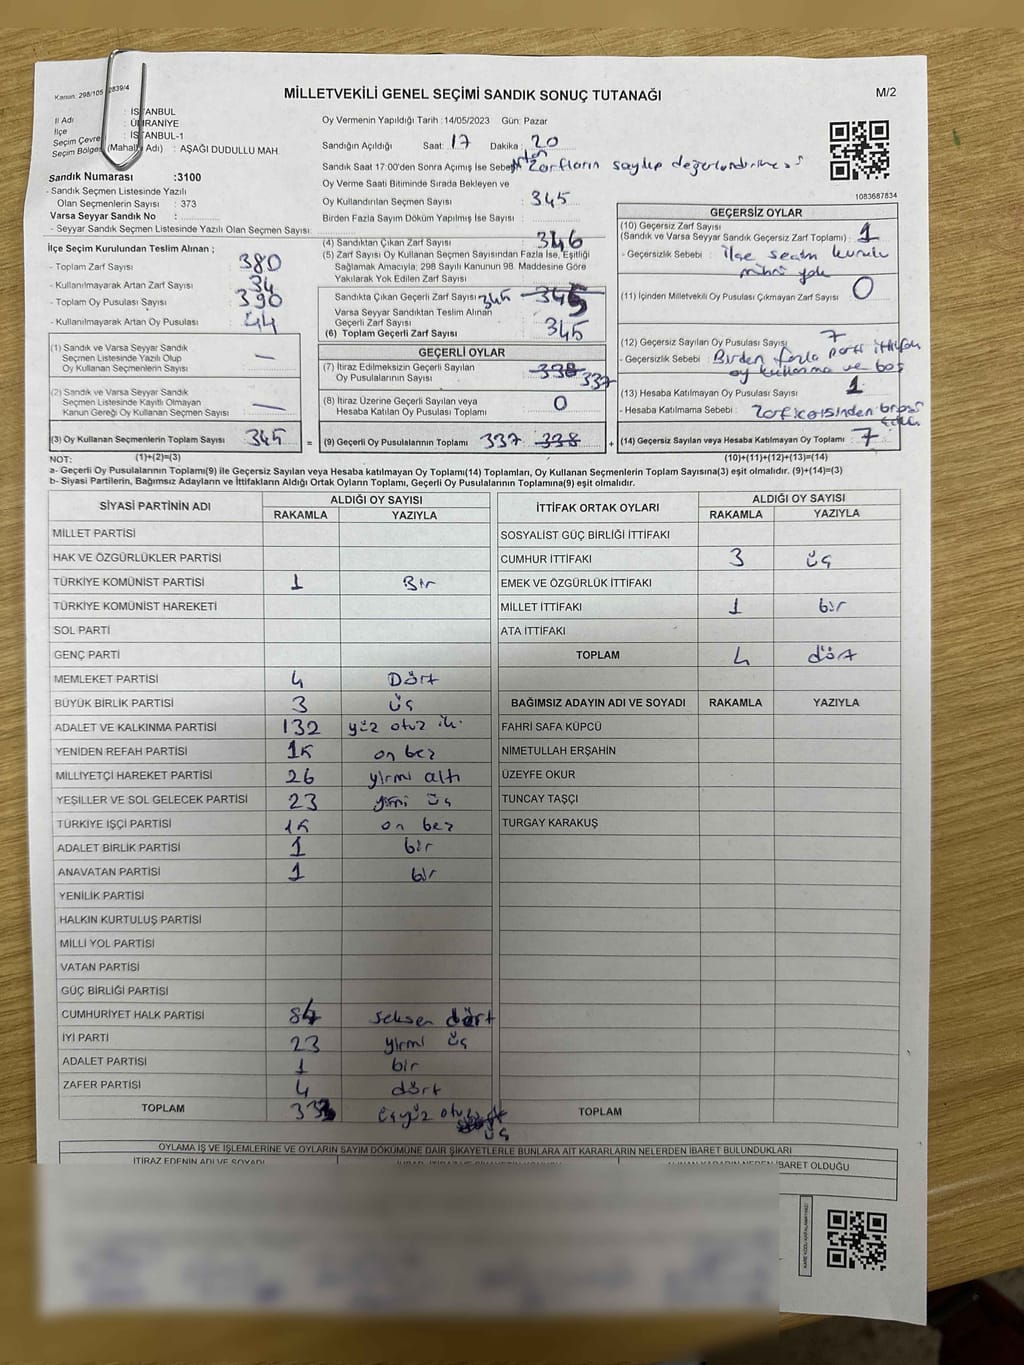 Kanun: 298/105 2839/4
MİLLETVEKİLİ GENEL SEÇİMİ SANDIK SONUÇ TUTANAĞI
M/2
İl Adı : İSTANBUL
İlçe : ÜMRANİYE
Seçim Çevre : İSTANBUL-1
Seçim Bölges (Mahal Adı) : AŞAĞI DUDULLU MAH.
Sandık Numarası :3100
- Sandık Seçmen Listesinde Yazılı
Olan Seçmenlerin Sayısı : 373
Varsa Seyyar Sandık No :
- Seyyar Sandık Seçmen Listesinde Yazılı Olan Seçmen Sayısı:
Oy Vermenin Yapıldığı Tarih :14/05/2023 Gün: Pazar
Sandığın Açıldığı Saat: 17 Dakika: 20
Sandık Saat 17:00'den Sonra Açılmış İse Sebebi Artan Zarfların sayılıp değerlendirilmesi
Oy Verme Saati Bitiminde Sırada Bekleyen ve
Oy Kullandırılan Seçmen Sayısı : 345
Birden Fazla Sayım Döküm Yapılmış İse Sayısı :
1083687834
İlçe Seçim Kurulundan Teslim Alınan ;
- Toplam Zarf Sayısı : 380
- Kullanılmayarak Artan Zarf Sayısı : 34
- Toplam Oy Pusulası Sayısı : 390
- Kullanılmayarak Artan Oy Pusulası : 44
(1) Sandık ve Varsa Seyyar Sandık
Seçmen Listesinde Yazılı Olup
Oy Kullanan Seçmenlerin Sayısı : —
(2) Sandık ve Varsa Seyyar Sandık
Seçmen Listesinde Kayıtlı Olmayan
Kanun Gereği Oy Kullanan Seçmen Sayısı : —
(3) Oy Kullanan Seçmenlerin Toplam Sayısı : 345 =
(4) Sandıktan Çıkan Zarf Sayısı : 346
(5) Zarf Sayısı Oy Kullanan Seçmen Sayısından Fazla İse, Eşitliği
Sağlamak Amacıyla; 298 Sayılı Kanunun 98. Maddesine Göre
Yakılarak Yok Edilen Zarf Sayısı :
Sandıkta Çıkan Geçerli Zarf Sayısı : 345 345
Varsa Seyyar Sandıktan Teslim Alınan
Geçerli Zarf Sayısı :
(6) Toplam Geçerli Zarf Sayısı : 345
GEÇERLİ OYLAR
(7) İtiraz Edilmeksizin Geçerli Sayılan
Oy Pusulalarının Sayısı : 338 337
(8) İtiraz Üzerine Geçerli Sayılan veya
Hesaba Katılan Oy Pusulası Toplamı : 0
(9) Geçerli Oy Pusulalarının Toplamı : 337 338 +
GEÇERSİZ OYLAR
(10) Geçersiz Zarf Sayısı
(Sandık ve Varsa Seyyar Sandık Geçersiz Zarf Toplamı) : 1
- Geçersizlik Sebebi : İlçe seçim kurulu
mührü yok
(11) İçinden Milletvekili Oy Pusulası Çıkmayan Zarf Sayısı : 0
(12) Geçersiz Sayılan Oy Pusulası Sayısı : 7
- Geçersizlik Sebebi : Birden fazla parti ittifak
oy kullanma ve boş
(13) Hesaba Katılmayan Oy Pusulası Sayısı : 1
- Hesaba Katılmama Sebebi :
(14) Geçersiz Sayılan veya Hesaba Katılmayan Oy Toplamı : 7
NOT: (1)+(2)=(3) (10)+(11)+(12)+(13)=(14)
a- Geçerli Oy Pusulalarının Toplamı(9) ile Geçersiz Sayılan veya Hesaba Katılmayan Oy Toplamı(14) Toplamları, Oy Kullanan Seçmenlerin Toplam Sayısına(3) eşit olmalıdır. (9)+(14)=(3)
b- Siyasi Partilerin, Bağımsız Adayların ve İttifakların Aldığı Ortak Oyların Toplamı, Geçerli Oy Pusulalarının Toplamına(9) eşit olmalıdır.
SİYASİ PARTİNİN ADI ALDIĞI OY SAYISI
RAKAMLA YAZIYLA
MİLLET PARTİSİ
HAK VE ÖZGÜRLÜKLER PARTİSİ
TÜRKİYE KOMÜNİST PARTİSİ 1 Bir
TÜRKİYE KOMÜNİST HAREKETİ
SOL PARTİ
GENÇ PARTİ
MEMLEKET PARTİSİ 4 Dört
BÜYÜK BİRLİK PARTİSİ 3 üç
ADALET VE KALKINMA PARTİSİ 132 yüz otuz iki
YENİDEN REFAH PARTİSİ 15 on beş
MİLLİYETÇİ HAREKET PARTİSİ 26 yirmi altı
YEŞİLLER VE SOL GELECEK PARTİSİ 23 yirmi üç
TÜRKİYE İŞÇİ PARTİSİ 15 on beş
ADALET BİRLİK PARTİSİ 1 bir
ANAVATAN PARTİSİ 1 bir
YENİLİK PARTİSİ
HALKIN KURTULUŞ PARTİSİ
MİLLİ YOL PARTİSİ
VATAN PARTİSİ
GÜÇ BİRLİĞİ PARTİSİ
CUMHURİYET HALK PARTİSİ 84 seksen dört
İYİ PARTİ 23 yirmi üç
ADALET PARTİSİ 1 bir
ZAFER PARTİSİ 4 dört
TOPLAM 333 üçyüz otuz
üç
İTTİFAK ORTAK OYLARI ALDIĞI OY SAYISI
RAKAMLA YAZIYLA
SOSYALİST GÜÇ BİRLİĞİ İTTİFAKI
CUMHUR İTTİFAKI 3 üç
EMEK VE ÖZGÜRLÜK İTTİFAKI
MİLLET İTTİFAKI 1 bir
ATA İTTİFAKI
TOPLAM 4 dört
BAĞIMSIZ ADAYIN ADI VE SOYADI RAKAMLA YAZIYLA
FAHRİ SAFA KÜPCÜ
NİMETULLAH ERŞAHİN
ÜZEYFE OKUR
TUNCAY TAŞÇI
TURGAY KARAKUŞ
TOPLAM
OYLAMA İŞ VE İŞLEMLERİNE VE OYLARIN SAYIM DÖKÜMÜNE DAİR ŞİKAYETLERLE BUNLARA AİT KARARLARIN NELERDEN İBARET BULUNDUKLARI
İTİRAZ EDENİN ADI VE SOYADI
İBARET OLDUĞU